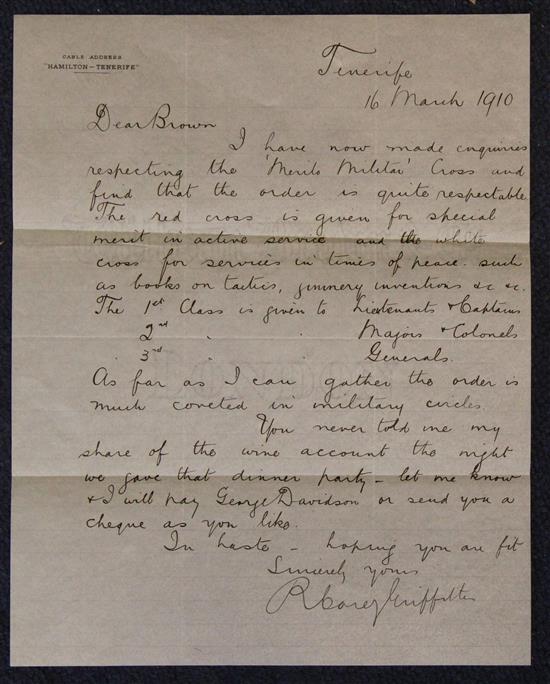 CABLE ADDRESS
"HAMILTON-TENERIFE"
Tenerife
16 March 1910
Dear Brown
I have now made enquiries
respecting the 'Merito Militar' Cross and
find that the order is quite respectable.
The red cross is given for special
merit in active service and the white
cross for services in times of peace. such
as books on tactics, gunnery inventions &c &c.
The 1st Class is given to Lieutenants & Captains
2nd " " Majors & Colonels
3rd " " Generals.
As far as I can gather the order is
much coveted in military circles
You never told me my
share of the wine account the night
we gave that dinner party - let me know
& I will pay George Davidson or send you a
cheque as you like.
In haste - hoping you are fit
Sincerely yours
R Carey Griffith